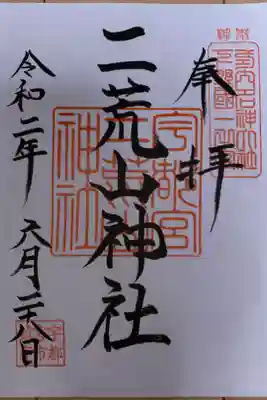 奉拝
二荒山神社
令和二年 六月二十八日
宇都宮
二荒山
神社